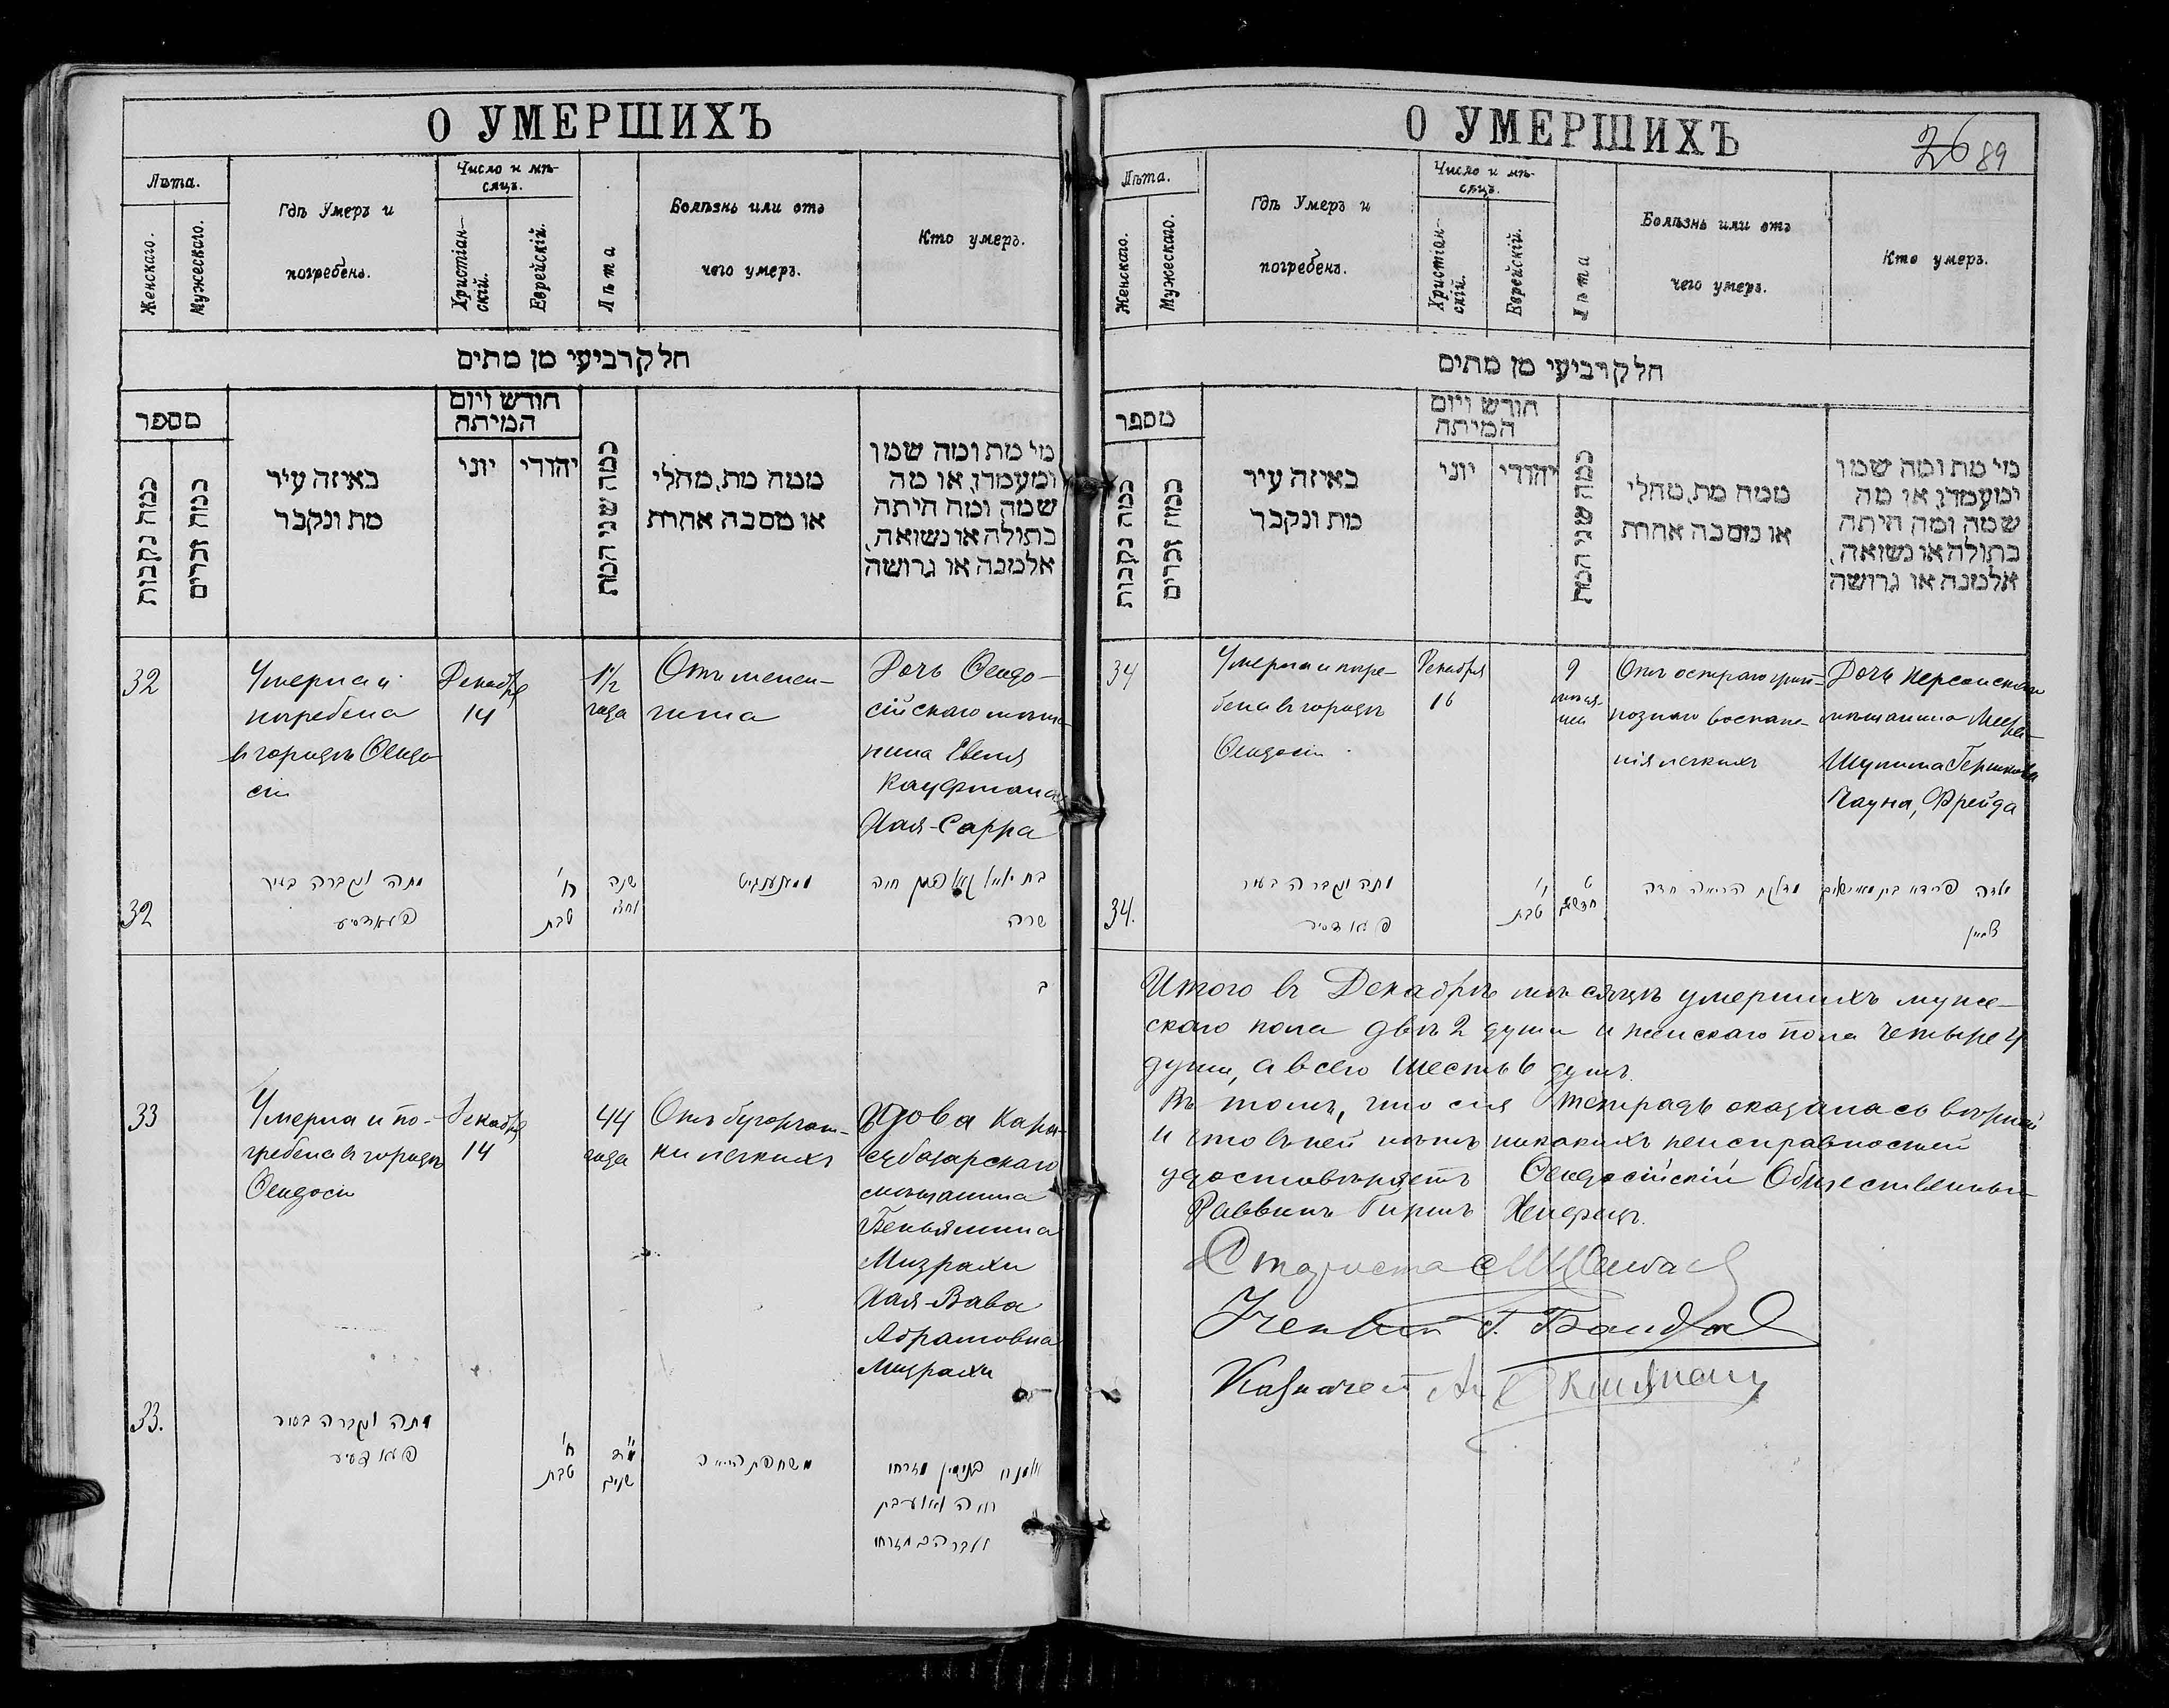 О УМЕРШИХЪ
Лѣта.
Женскаго.
Мужескаго.
Гдѣ Умеръ и
погребенъ.
Число и мѣ-
сяцъ.
Христіан-
скій.
Еврейскій.
Лѣта
Болѣзнь или отъ
чего умеръ.
Кто умеръ.
חלק רביעי מן מתים
מספר
כמה נקבות
כמה זכרים
באיזה עיר
מת ונקבר
חודש ויום
המיתה
יוני
יהודי
כמה שני המת
ממה מת, מחלי
או מסבה אחרת
מי מת ומה שמו
ומעמדו, או מה
שמה ומה היתה
בתולה או נשואה,
אלמנה או גרושה
32
Умерла и
погребена
въ городѣ Ѳеодо
сіи
Декабря
14
1½
года
Отъ менен-
гита
Дочь Ѳеодо-
сійскаго мѣща-
нина Евеля
Кауфмана
Хая-Сарра
32
מתה ונקברה בעיר
ח'
טבת
שנה
וחצי
חיה
שרה
33
Умерла и по-
гребена въ городѣ
Ѳеодосіи
Декабря
14
44
года
Отъ бугорчат-
ки легкихъ
Вдова Кара-
субазарскаго
мѣщанина
Беньямина
Мизрахи
Хая-Вава
Абрамовна
Мизрахи
33.
מתה ונקברה בעיר
ח'
טבת
מ"ד
שנים
בנימין מזרחי
חיה
מזרחי
О УМЕРШИХЪ
26 89
Лѣта.
Женскаго.
Мужескаго.
Гдѣ Умеръ и
погребенъ.
Число и мѣ-
сяцъ.
Христіан-
скій.
Еврейскій.
Лѣта
Болѣзнь или отъ
чего умеръ.
Кто умеръ.
חלק רביעי מן מתים
מספר
כמה נקבות
כמה זכרים
באיזה עיר
מת ונקבר
חודש ויום
המיתה
יוני
יהודי
כמה שני המת
ממה מת, מחלי
או מסבה אחרת
מי מת ומה שמו
ומעמדו, או מה
שמה ומה היתה
בתולה או נשואה,
אלמנה או גרושה
34
Умерла и погре-
бена въ городѣ
Ѳеодосіи
Декабря
16
9
Отъ остраго круп-
познаго воспале-
нія легкихъ
Дочь Херсонскаго
мѣщанина
Гершкова
Фрейда
34.
מתה ונקברה בעיר
י'
טבת
ט
חדשים
דלקת הריאה חדה
ילדה פרידא בת
Итого въ Декабрѣ мѣсяцѣ умершихъ муже-
скаго пола двѣ 2 души и женскаго пола четыре 4
души, а всего шесть 6 душъ.
Въ томъ, что сія тетрадь оказалась вѣрной
и что въ ней нѣтъ никакихъ неисправностей
удостовѣряетъ Ѳеодосійскій Общественный
Раввинъ Гиршъ
Староста
Г.
Казначей